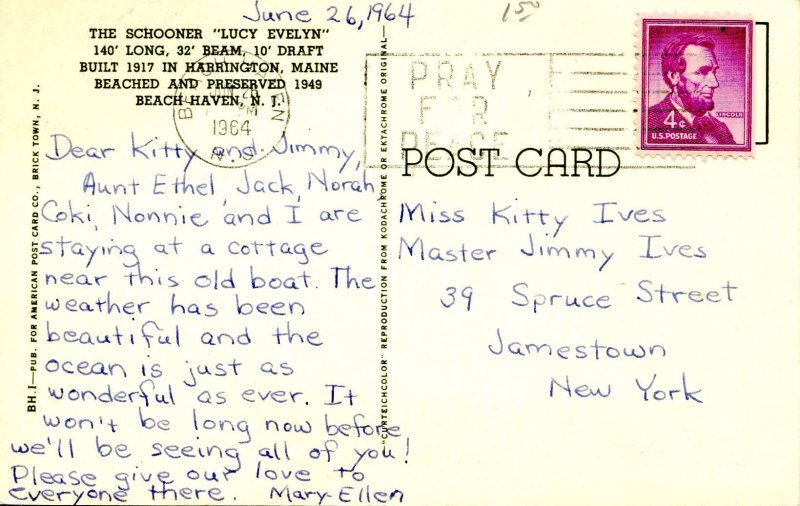 June 26, 1964
15⁰⁰
THE SCHOONER "LUCY EVELYN"
140' LONG, 32' BEAM, 10' DRAFT
BUILT 1917 IN HARRINGTON, MAINE
BEACHED AND PRESERVED 1949
BEACH HAVEN, N. J.
1964
PM
N.J.
PRAY
FOR
PEACE
LINCOLN
4¢
U.S. POSTAGE
Dear Kitty and Jimmy,
Aunt Ethel, Jack, Norah,
Coki, Nonnie and I are
staying at a cottage
near this old boat. The
weather has been
beautiful and the
ocean is just as
wonderful as ever. It
won't be long now before
we'll be seeing all of you!
Please give our love to
everyone there. Mary-Ellen
POST CARD
Miss Kitty Ives
Master Jimmy Ives
39 Spruce Street
Jamestown
New York
BH.1—PUB. FOR AMERICAN POST CARD CO., BRICK TOWN, N. J.
"CURTEICHCOLOR" REPRODUCTION FROM KODACHROME OR EKTACHROME ORIGINAL